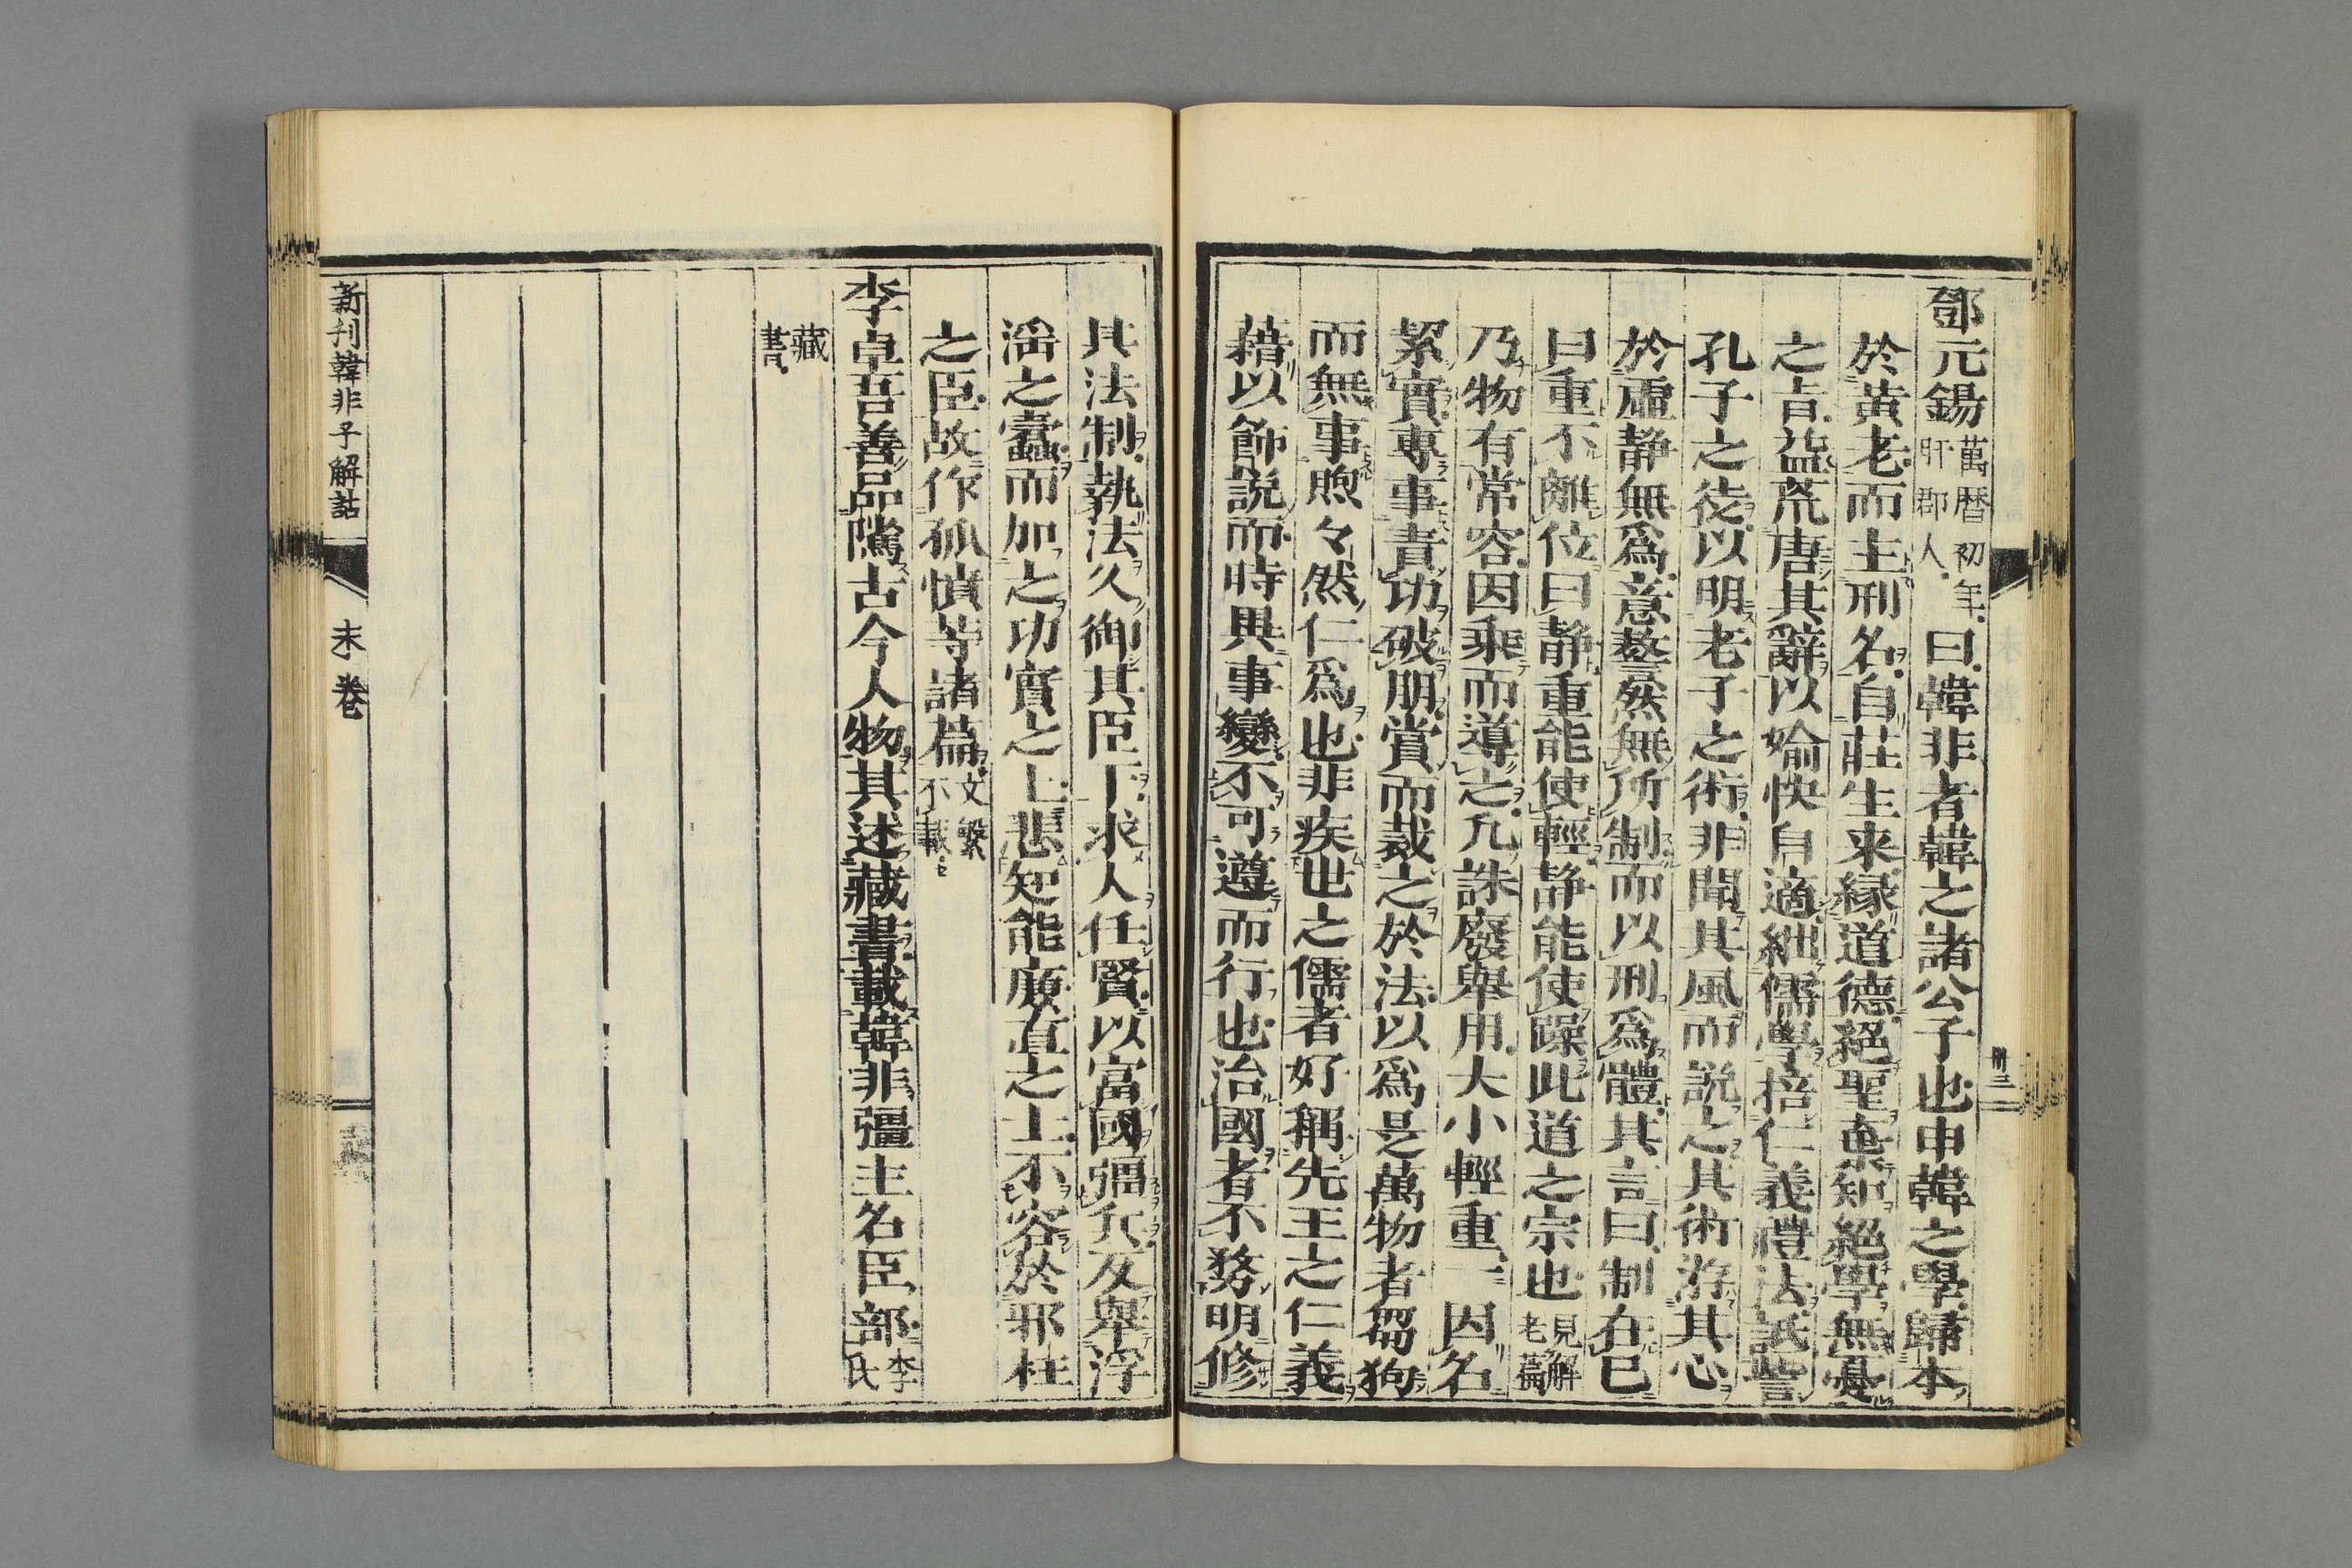 鄧元錫萬暦初年肝郡人曰韓非者韓之諸公子也申韓之學歸本
於黄老而主刑名自莊生来縁道德絕聖棄知絕學無憂
之旨益荒唐其辭以愉快自適絀儒學掊仁義禮法詆訾
孔子之徒以明老子之術非聞其風而説之其術游其心
於虛静無爲意整然無所制而以刑爲體其言曰制在已
曰重不離位曰静重能使輕静能使躁此道之宗也見解老篇
乃物有常容因乘而導之凡誅廢舉用大小輕重一因名
絜實專事責功破朋賞而裁之於法以爲是萬物者芻狗
而無事煦々然仁爲也非疾世之儒者好稱先王之仁義
藉以飾説而時異事變不可遵而行也治國者不務明修
其法制執法久御其臣下求人任賢以富國彊兵反舉浮
淫之蠹而加之功實之上悲知能廉直之士不容於邪枉
之臣故作孤憤等諸篇文繁不載
李卓吾善品隲古今人物其述藏書載韓非彊主名臣部李氏
藏書
新刊韓非子解詁
末卷
附三